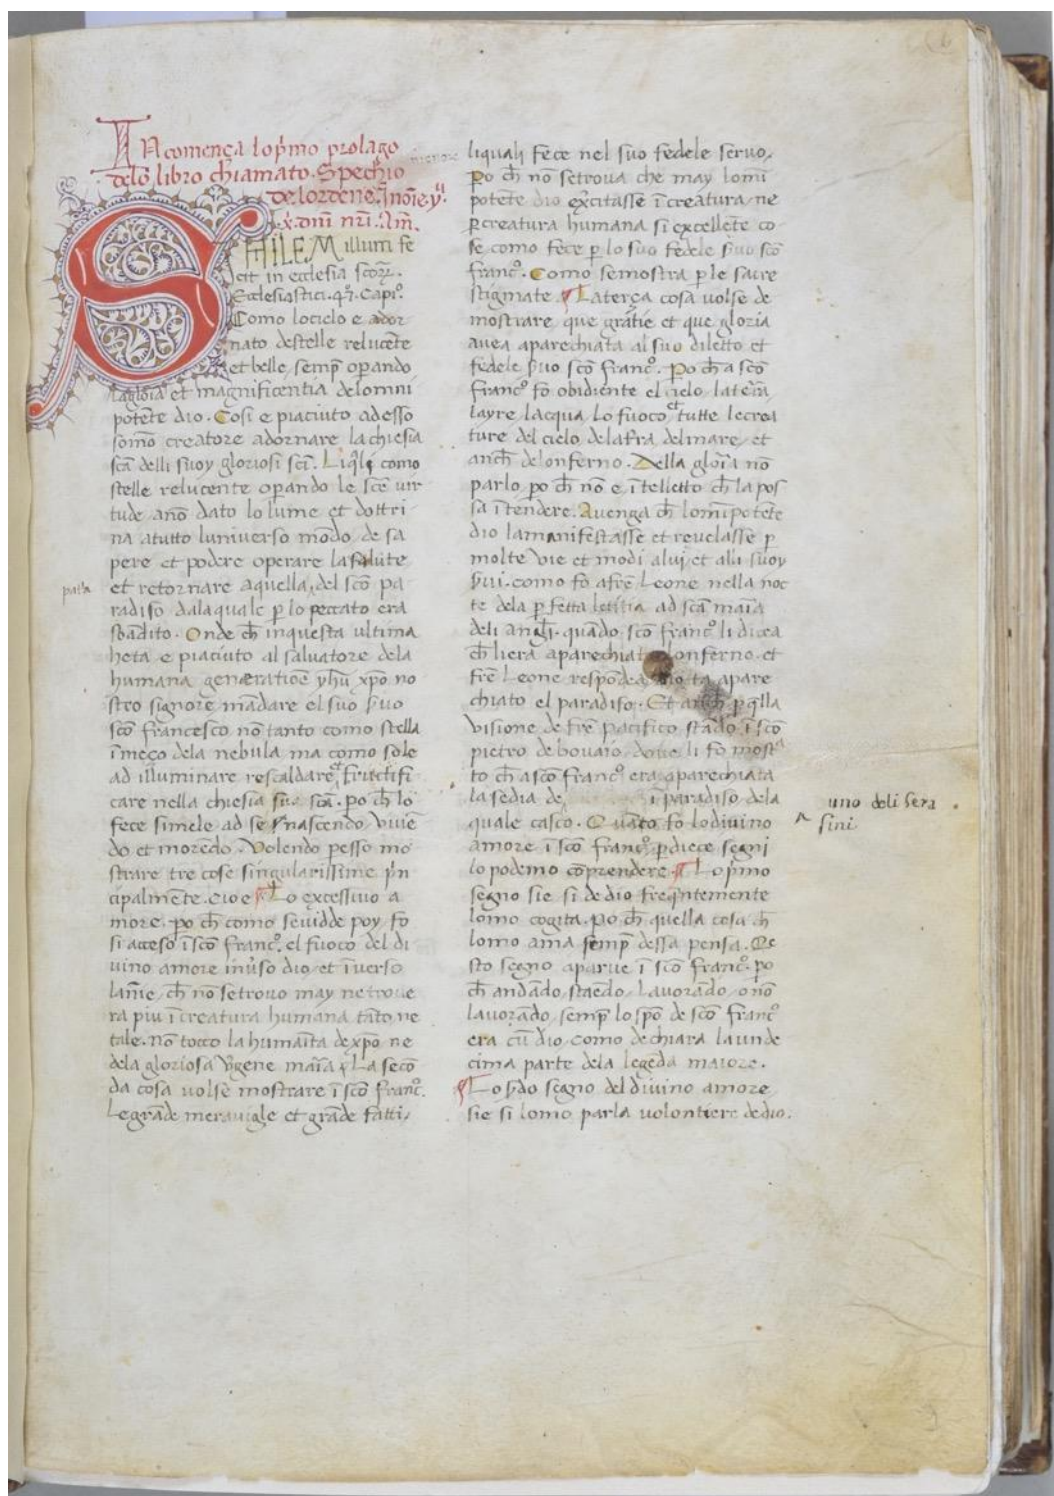 IN comença lo p̃mo prolago
delõ libro chiamato. Spechio
de lordene. J noĩe. y̾.
x̾. dnĩ nr̃i. Am̃.
SIMILEM illum fe
cit in ecclesia scõꝝ.
Ecclesiastici. 47. Capi°.
Como lo cielo e ador
nato de stelle relucẽte
et belle, semp̃ oꝑando
la gloĩa et magnificentia de lomni
potẽte dio. Cosi e piaciuto ad esso
som̃o creatore adornare la chiesia
scã delli suoy gloriosi scĩ. Li q̃li como
stelle relucente oꝑando le scẽ vir
tude anõ dato lo lume et dottri
na a tutto luniverso mõdo, de sa
pere et podere operare la salute
et retornare a quella del scõ pa
radiso dala quale ꝑ lo peccato era
sbãdito. Onde ch̃ in questa ultima
heta e piaciuto al salvatore dela
humana generatiõe yhũ xp̃o no
stro signore mãdare el suo s̃vo
scõ francesco nõ tanto como stella
ĩ meço dela nebula ma como sole
ad illuminare rescaldare et fructifi
care nella chiesia sua scã. po ch̃ lo
fece simele ad se nascendo, viuẽ
do et morẽdo. Volendo per esso mo
strare tre cose singularissime p̃n
cipalmẽte. cioe ¶ Lo excessiuo a
more. po ch̃ como se vidde poy, fo
si acceso ĩ scõ franc°. el fuoco del di
vino amore inṽso dio, et ĩ verso
lanĩe, ch̃ nõ se trovo may ne trove
ra piu ĩ creatura humana tãto, ne
tale. nõ tocco la humaĩta de xp̃o ne
dela gloriosa ṽgene maĩa ¶ La secõ
da cosa volse mostrare ĩ scõ franc°.
Le grãde meravigle et grãde fatti,
li quali fece nel suo fedele servo.
ꝑo ch̃ nõ se trova che may lomĩ
potẽte dio excitasse ĩ creatura, ne
ꝑ creatura humana si excellẽte co
se como fece ꝑ lo suo fedele s̃uo scõ
franc°. Como se mostra ꝑ le sacre
stigmate. ¶ La terça cosa volse de
mostrare, que gratĩe et que gloria
auea aparechiata al suo diletto et
fedele s̃uo scõ franc°. Po ch̃ a scõ
franc° fo obidiente el cielo, la terã
layre, lacqua, lo fuoco et tutte le crea
ture del cielo, dela tr̃a del mare, et
anch̃ de lonferno. Della gloĩa nõ
parlo, po ch̃ nõ e ĩtelletto ch̃ la pos
sa ĩtendere. Avenga ch̃ lomĩpotẽte
dio la manifestasse et revelasse ꝑ
molte vie et modi a lui, et ali suoy
s̃ui. como fo a fr̃e Leone nella noc
te dela ꝑfetta letitia, ad scã maĩa
deli angl̃i. quãdo scõ franc° li dicea
ch̃ li era aparechiato lonferno. et
fr̃e Leone respõdea apare
chiato el paradiso. Et anch̃ ꝑ q̃lla
visione de fr̃e pacifico stãdo ĩ scõ
pietro de bovaĩo, dove li fo most̾
to ch̃ a scõ franc° era aparechiata
la sedia de ĩ paradiso dela
quale casco. Quãto fo lo divino
amore ĩ scõ franc°, ꝑ diece segni
lo podemo cõprendere. ¶ Lo p̃mo
segno sie, si de dio freq̃ntemente
lomo cogita. Po ch̃ quella cosa ch̃
lomo ama semp̃ dessa pensa. Que
sto segno aparve ĩ scõ franc°. po
ch̃ andãdo, staẽdo, lavorãdo, o nõ
lavorãdo, semp̃ lo sp̃o de scõ franc°
era cũ dio, como dechiara la unde
cima parte dela legẽda maiore.
¶ Lo s̃do segno del divino amore
sie si lomo parla volontiere de dio.
uno deli sera
fini